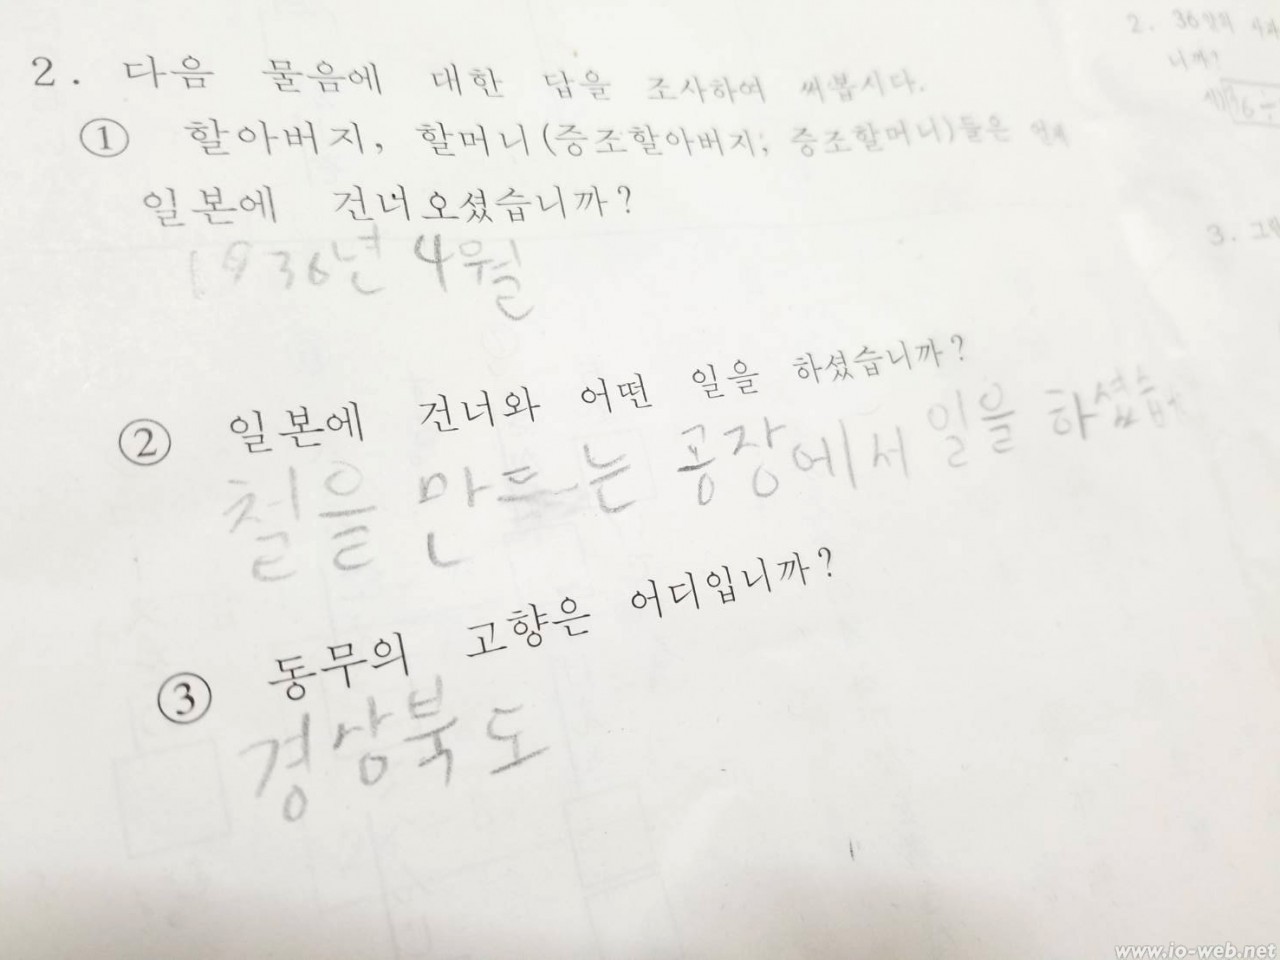 2. 다음 물음에 대한 답을 조사하여 써봅시다.
① 할아버지, 할머니(증조할아버지, 증조할머니)들은 언제
일본에 건너오셨습니까?
1936년 4월
② 일본에 건너와 어떤 일을 하셨습니까?
철을 만드는 공장에서 일을 하셨습
③ 동무의 고향은 어디입니까?
경상북도
2. 36
니까?
3. 그
www.io-web.net